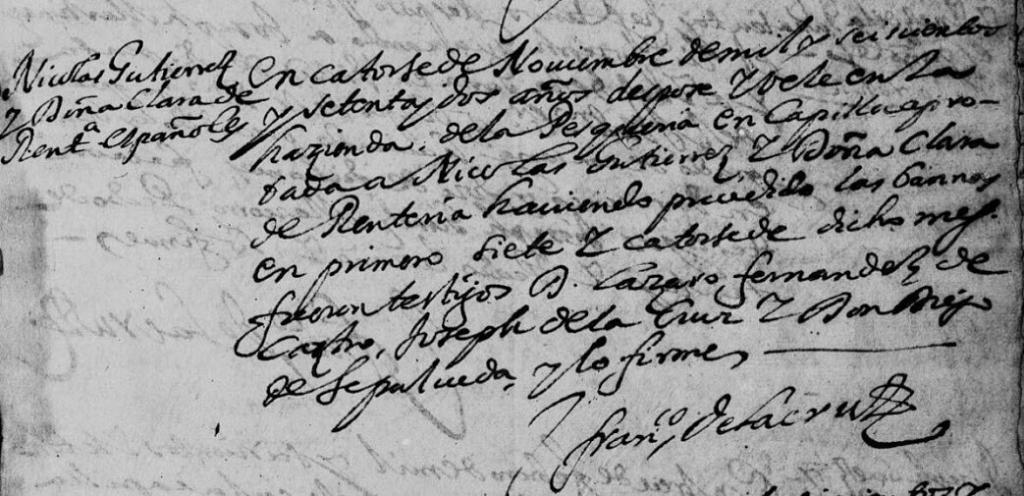 Nicolas Gutierrez
y Doña Clara de
Rent.ª españoles
en catorse de Noviembre de mil y seiscientos
y setenta y dos años despose y vele en la
hazienda de la Pesqueria en Capilla apro-
bada a Nicolas Gutierrez y Doña Clara
de Renteria haviendo presedido las bannas
en primero siete y catorse de dicho mes.
fueron testigos D. Lazaro fernandez de
Castro, Joseph de la Cruz y Don Diego
de Sepulueda, y lo firme
fran.co de la Cruz